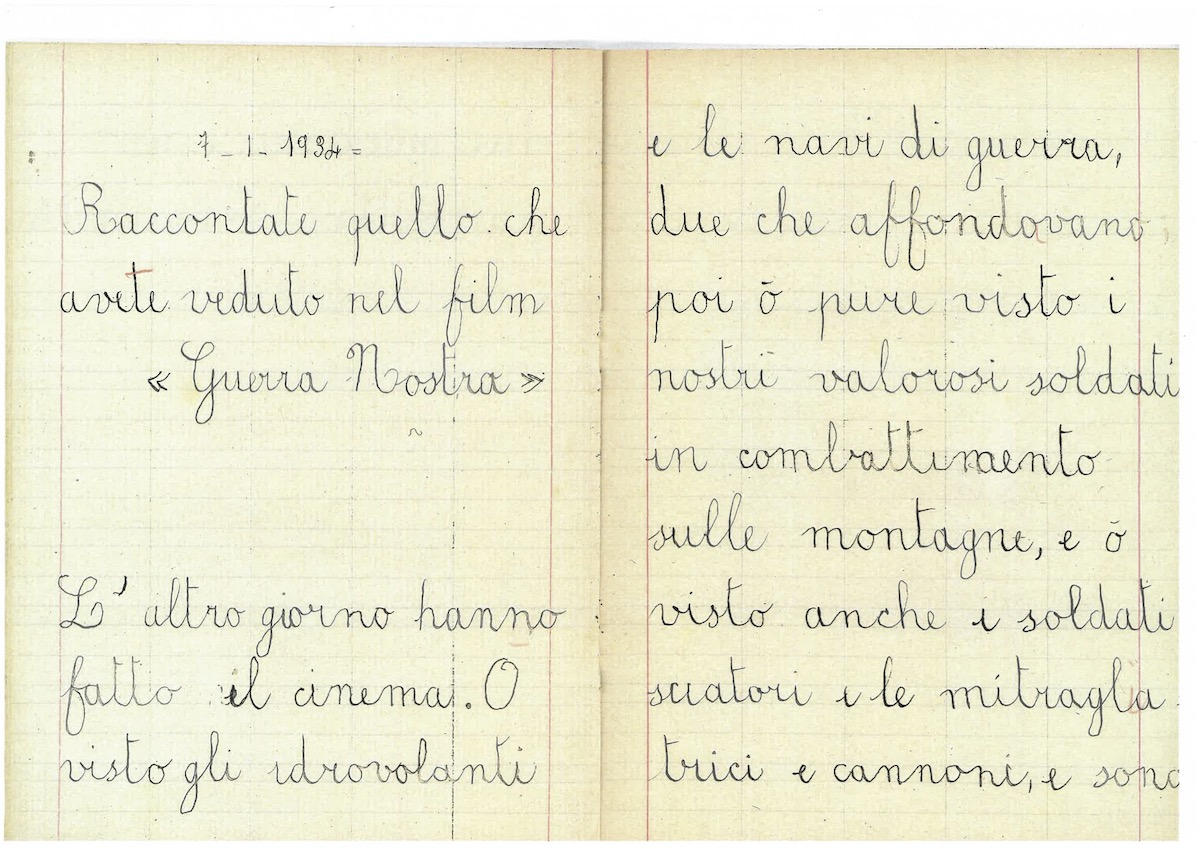 7-1-1934=
Raccontate quello che
avete veduto nel film
« Guerra Nostra »
~
L'altro giorno hanno
fatto il cinema. O
visto gli idrovolanti
e le navi di guerra,
due che affondovano,
poi ō pure visto i
nostri valorosi soldati
in combattimento
sulle montagne, e ō
visto anche i soldati
sciatori e le mitragla
trici e cannoni, e sono